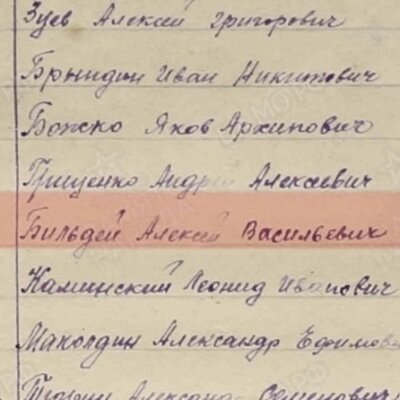 Зуев Алексей Григорович
Брындин Иван Никитович
Божко Яков Архипович
Грищенко Андрей Алексеевич
Бильдей Алексей Васильевич
Каминский Леонид Иванович
Маколдин Александр Ефимов
Александр Семенович